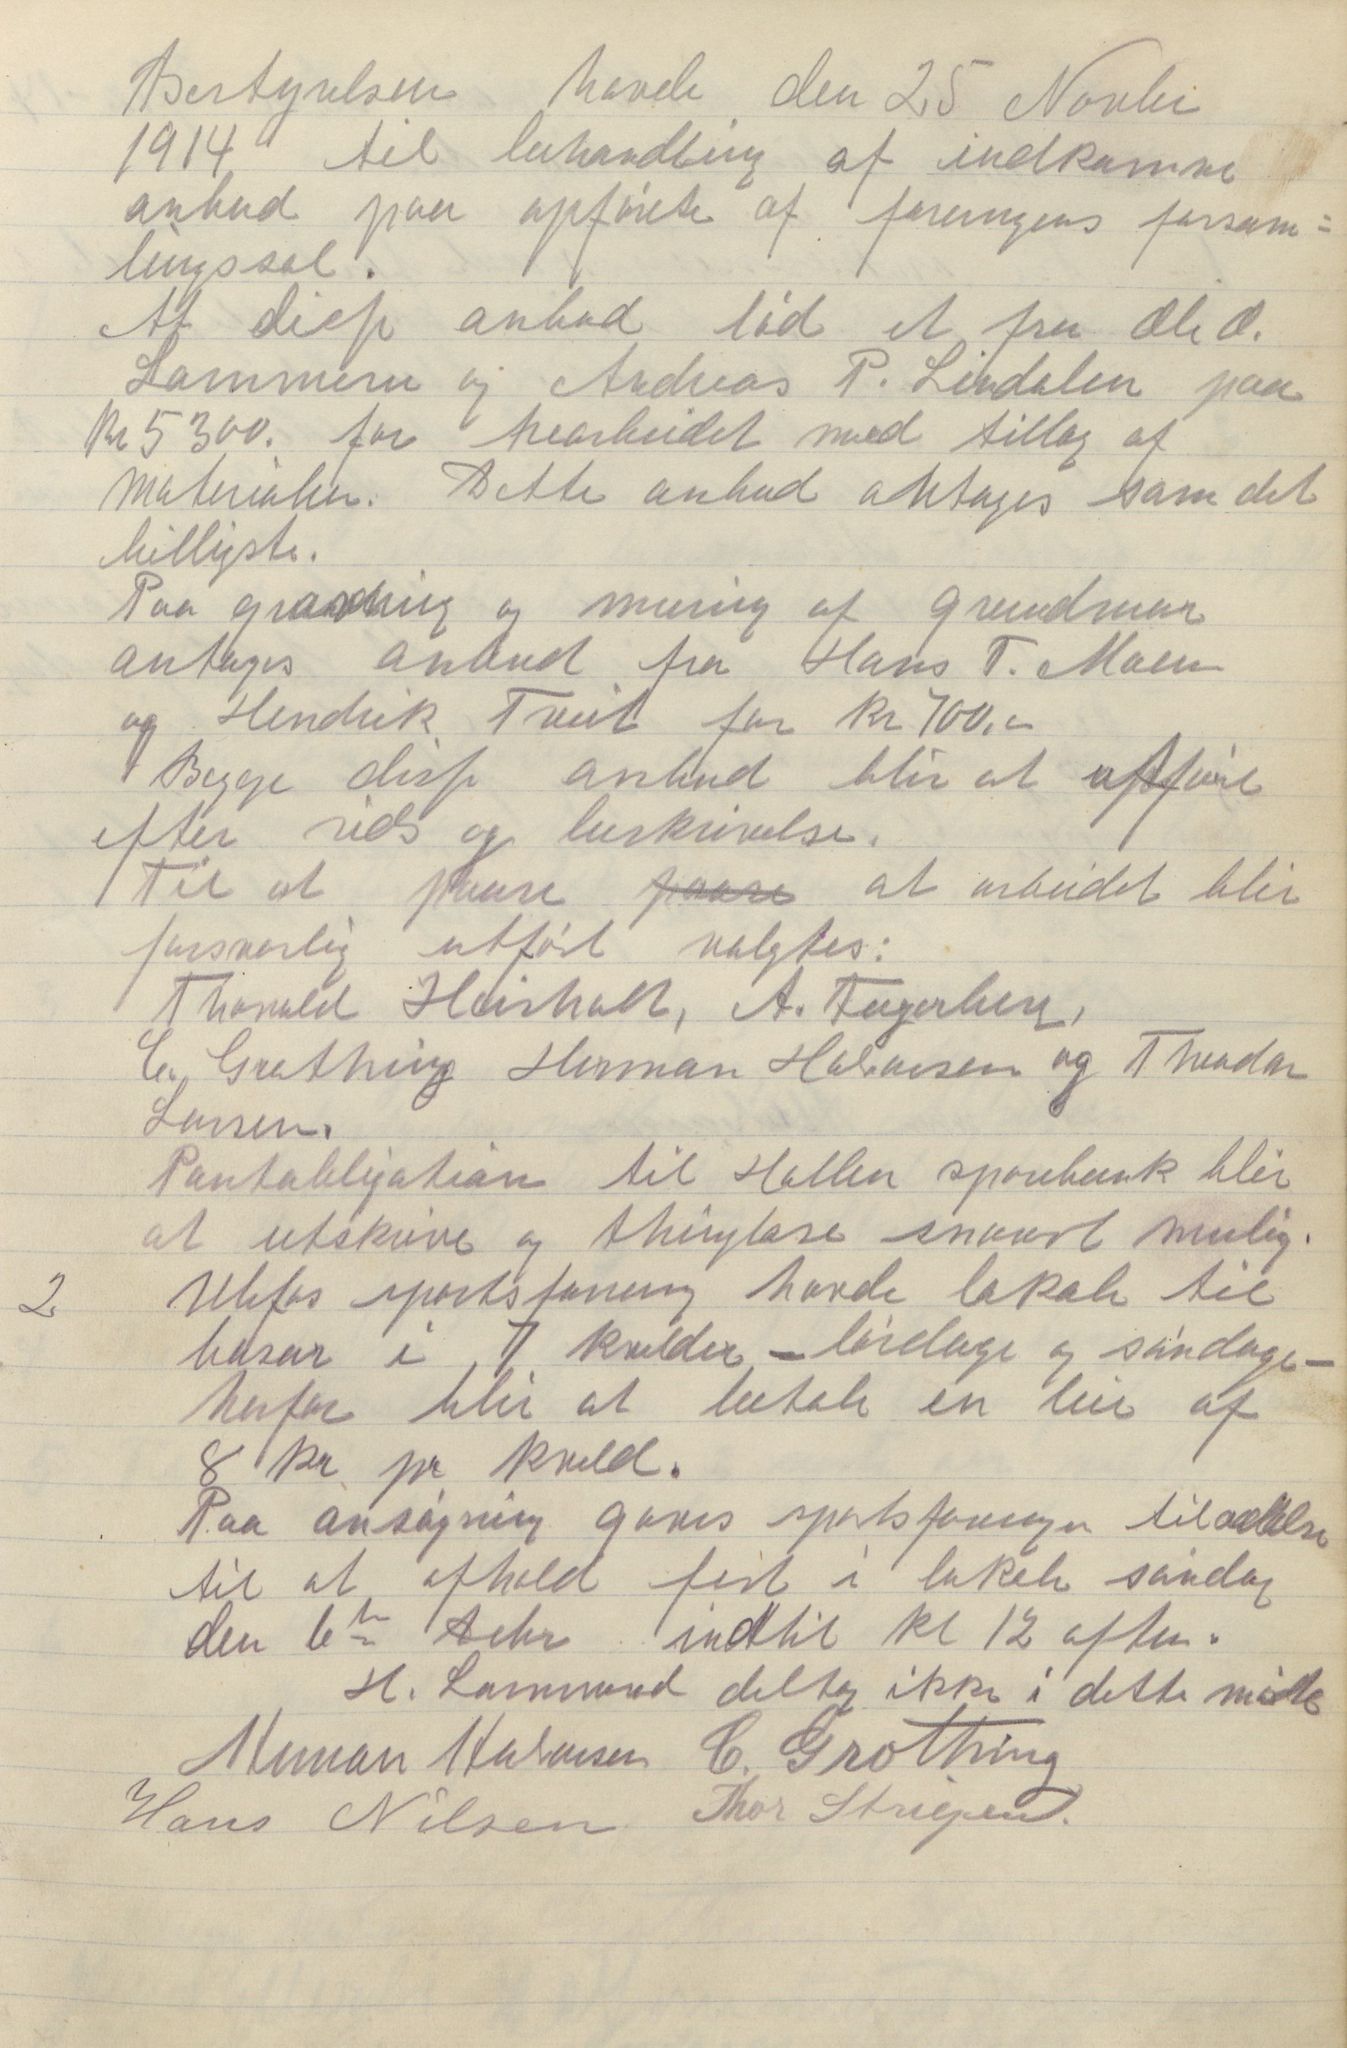 Bestyrelsen havde den 25 Novbr
1914 til behandling af indkomne
anbud paa opförelse af foreningens forsam=
lingssal.
At disse anbud löd et fra Ole O.
Lammern og Andreas P. Lindalen paa
Kr 5300. for træarbeidet med tillæg af
Materialer. Dette anbud antages som det
billigste.
Paa gravning og muring af grundmur
antages anbud fra Hans T. Moen
og Hendrik Tveit for Kr 700.-
Begge disse anbud blir at utföre
efter rids og beskrivelse.
Til at paase paase at arbeidet blir
forsvarlig utfört valgtes:
Thorvald Heisholt, A. Fagerberg,
C. Grothing Herman Halvorsen og Theodor
Larsen.
Pantobligation til Hollen sparebank blir
at utskrive og thinglæse snarest mulig.
2 Ulefos sportsforening havde lokale til
basar i 7 kvelder - lördage og söndage -
herfor blir at betale en leie af
8 kr pr kveld.
Paa ansögning gaves sportsforeningen tilladelse
til at afholde fest i lokale söndag
den 6te Decbr indtil kl 12 aften.
H. Lammund deltog ikke i dette möte
Herman Halvorsen C. Grothing
Hans Nilsen Thor Striegen.